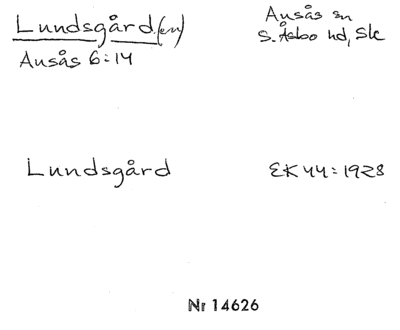 Lundsgård.(en)
Ausås sn
S. Åsbo hd, Sk
Ausås 6:14
Lundsgård
EK 44:1928
Nr 14626